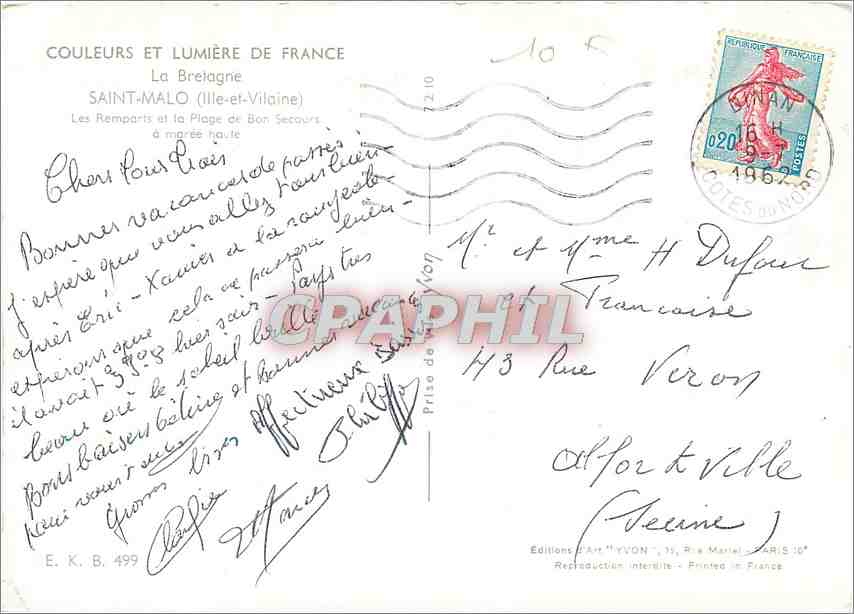 COULEURS ET LUMIÈRE DE FRANCE
La Bretagne
SAINT-MALO (Ille-et-Vilaine)
Les Remparts et la Plage de Bon Secours
à marée haute
10 F
7210
REPUBLIQUE FRANÇAISE
0,20
POSTES
DINAN
16 H
9-7
1962
COTES DU NORD
Chers tous trois
Bonnes vacances de passées
J'espère que vous allez tous bien
après Eric - Xavier a la rougeole
espérons que cela se passera bien
il avait 39°9 hier soir - Pays très
beau où le soleil brille
Bons baisers et bonnes vacances
pour vous
Grosses bises Affectueux Baisers
Philippe
Claudie
CPAPHIL
Prise de vues YVON
Mr et Mme H Dufour
et Francoise
43 Rue Veron
Alfortville
(Seine)
E. K. B. 499
Editions d'Art "YVON", 15, Rue Martel - PARIS 10e
Reproduction interdite - Printed in France